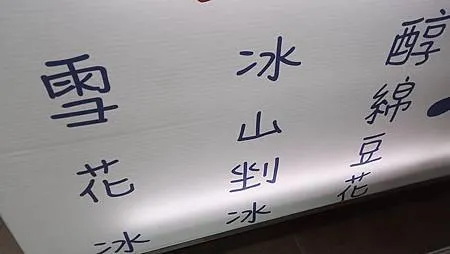 醇綿豆花
冰山剉冰
雪花冰